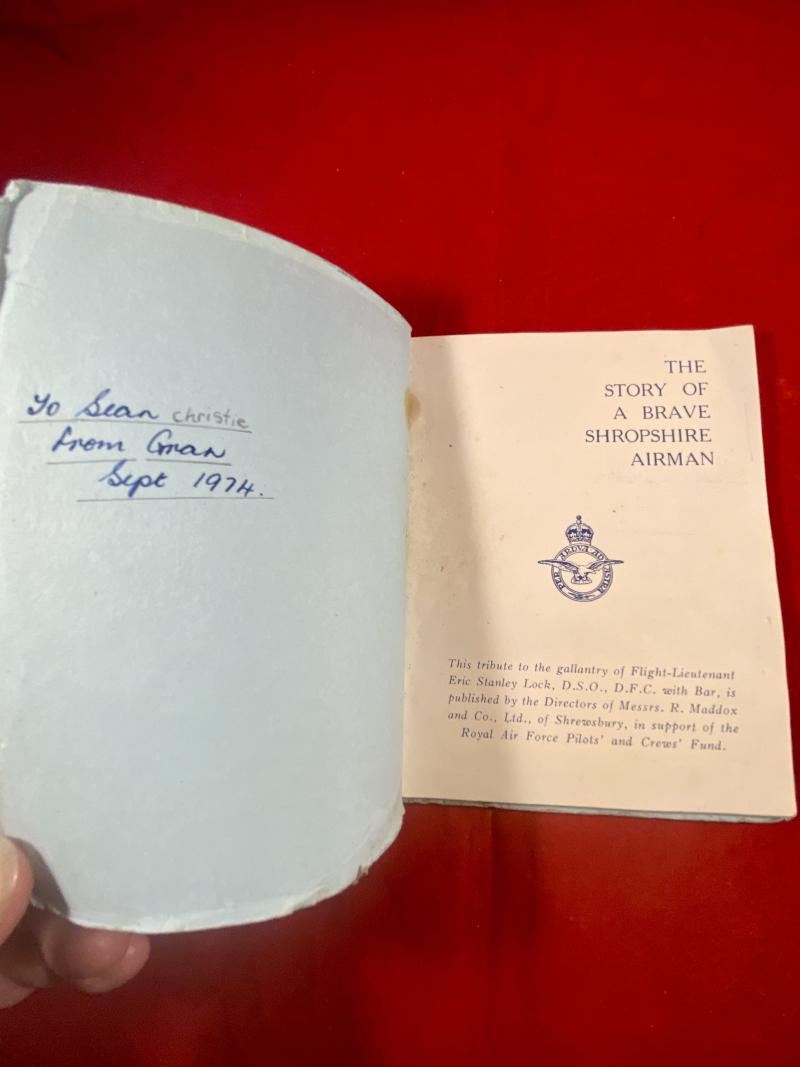 To Sean christie
from Gran
Sept 1974.
THE
STORY OF
A BRAVE
SHROPSHIRE
AIRMAN
PER ARDVA AD ASTRA
This tribute to the gallantry of Flight-Lieutenant
Eric Stanley Lock, D.S.O., D.F.C. with Bar, is
published by the Directors of Messrs. R. Maddox
and Co., Ltd., of Shrewsbury, in support of the
Royal Air Force Pilots' and Crews' Fund.